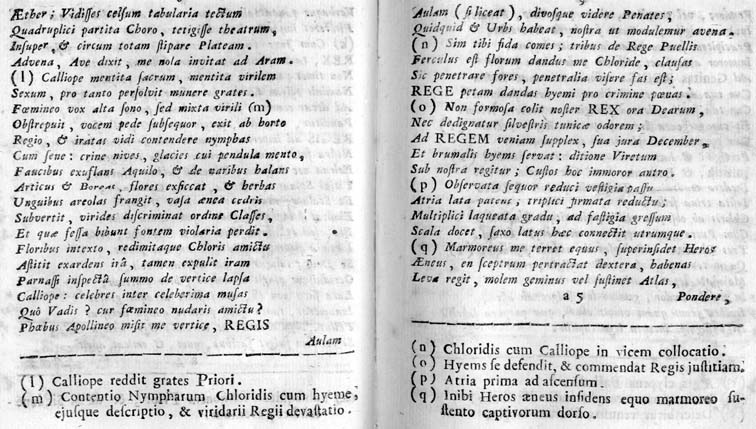 Æther; Vidisses celsum tabularia tectum
Quadruplici partita Choro, tetigisse theatrum,
Insuper, & circum totam stipare Plateam.
Advena, Ave dixit, me nola invitat ad Aram.
(l) Calliope mentita sacrum, mentita virilem
Sexum, pro tanto persolvit munere grates.
Fœmineo vox alta sono, sed mixta virili (m)
Obstrepuit, vocem pede subsequor, exit ab horto
Regio, & iratas vidi contendere nymphas
Cum sene: crine nives, glacies cui pendula mento,
Faucibus exuflans Aquilo, & de naribus halans
Articus & Boreas, flores exsiccat, & herbas
Unguibus areolas frangit, vasa ænea cedris
Subvertit, virides discriminat ordine Classes,
Et quæ fessa bibunt fontem violaria perdit.
Floribus intexto, redimitaque Chloris amictu
Astitit exardens irâ, tamen expulit iram
Parnassi inspectâ summo de vertice lapsa
Calliope: celebres inter celeberima musas
Quò Vadis? cur fœmineo nudaris amictu?
Phœbus Apollineo misit me vertice, REGIS
Aulam
(l) Calliope reddit grates Priori.
(m) Contentio Nympharum Chloridis cum hyeme,
ejusque descriptio, & viridarii Regii devastatio.
Aulam (si liceat), divosque videre Penates,
Quidquid & Urbs habeat, nostra ut modulemur avena.
(n) Sim tibi fida comes; tribus de Rege Puellis
Ferculus est florum dandus me Chloride, clausas
Sic penetrare fores, penetralia visere fas est;
REGE petam dandas hyemi pro crimine pœnas.
(o) Non formosa colit noster REX ora Dearum,
Nec dedignatur silvestris tunicæ odorem;
Ad REGEM veniam supplex, sua jura December,
Et brumalis hyems servat: ditione Viretum
Sub nostra regitur; Custos hoc immoror antro.
(p) Observata sequor reduci vestigia passu
Atria lata patent; triplici firmata reductu;
Multiplici laqueata gradu, ad fastigia gressum
Scala docet, saxo latus hæc connectit utrumque.
(q) Marmoreus me terret equus, superinsidet Heros
Æneus, en sceptrum pertractat dextera, habenas
Leva regit, molem geminus vel sustinet Atlas,
a 5 Pondere,
(n) Chloridis cum Calliope in vicem collocatio.
(o) Hyems se defendit, & commendat Regis justitiam.
(p) Atria prima ad ascensum.
(q) Inibi Heros æneus insidens equo marmoreo su-
stento captivorum dorso.